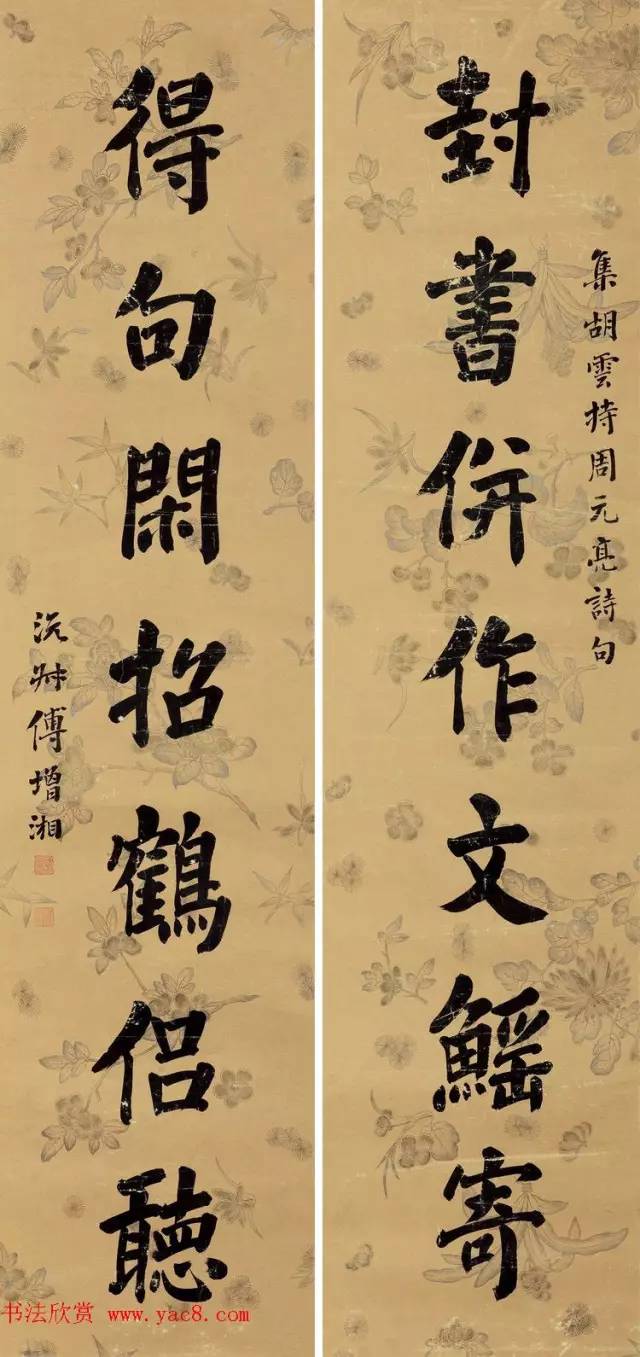 集胡雲持周元亮詩句
封書併作文鰩寄
得句閑招鶴侶聽
沅叔傅增湘
书法欣赏 www.yac8.com